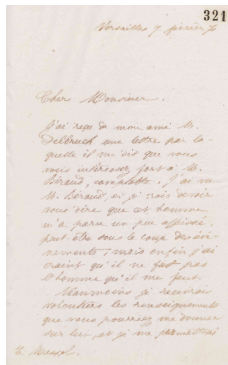 321
Versailles 7 février 76
Cher Monsieur
J'ai reçu de mon ami M.
Delbruck une lettre par la
quelle il me dit que vous
vous intéressez fort à M.
Béraud, comptable. J'ai vu
M. Béraud, et je crois devoir
vous dire que cet homme
m'a paru un peu affaissé,
peut être sous le coup des évé-
nements; mais enfin j'ai
craint qu'il ne fut pas
l'homme qu'il me faut.
Néanmoins je recevrai
volontiers les renseignements
que vous pourriez me donner
sur lui, et je me permettrai